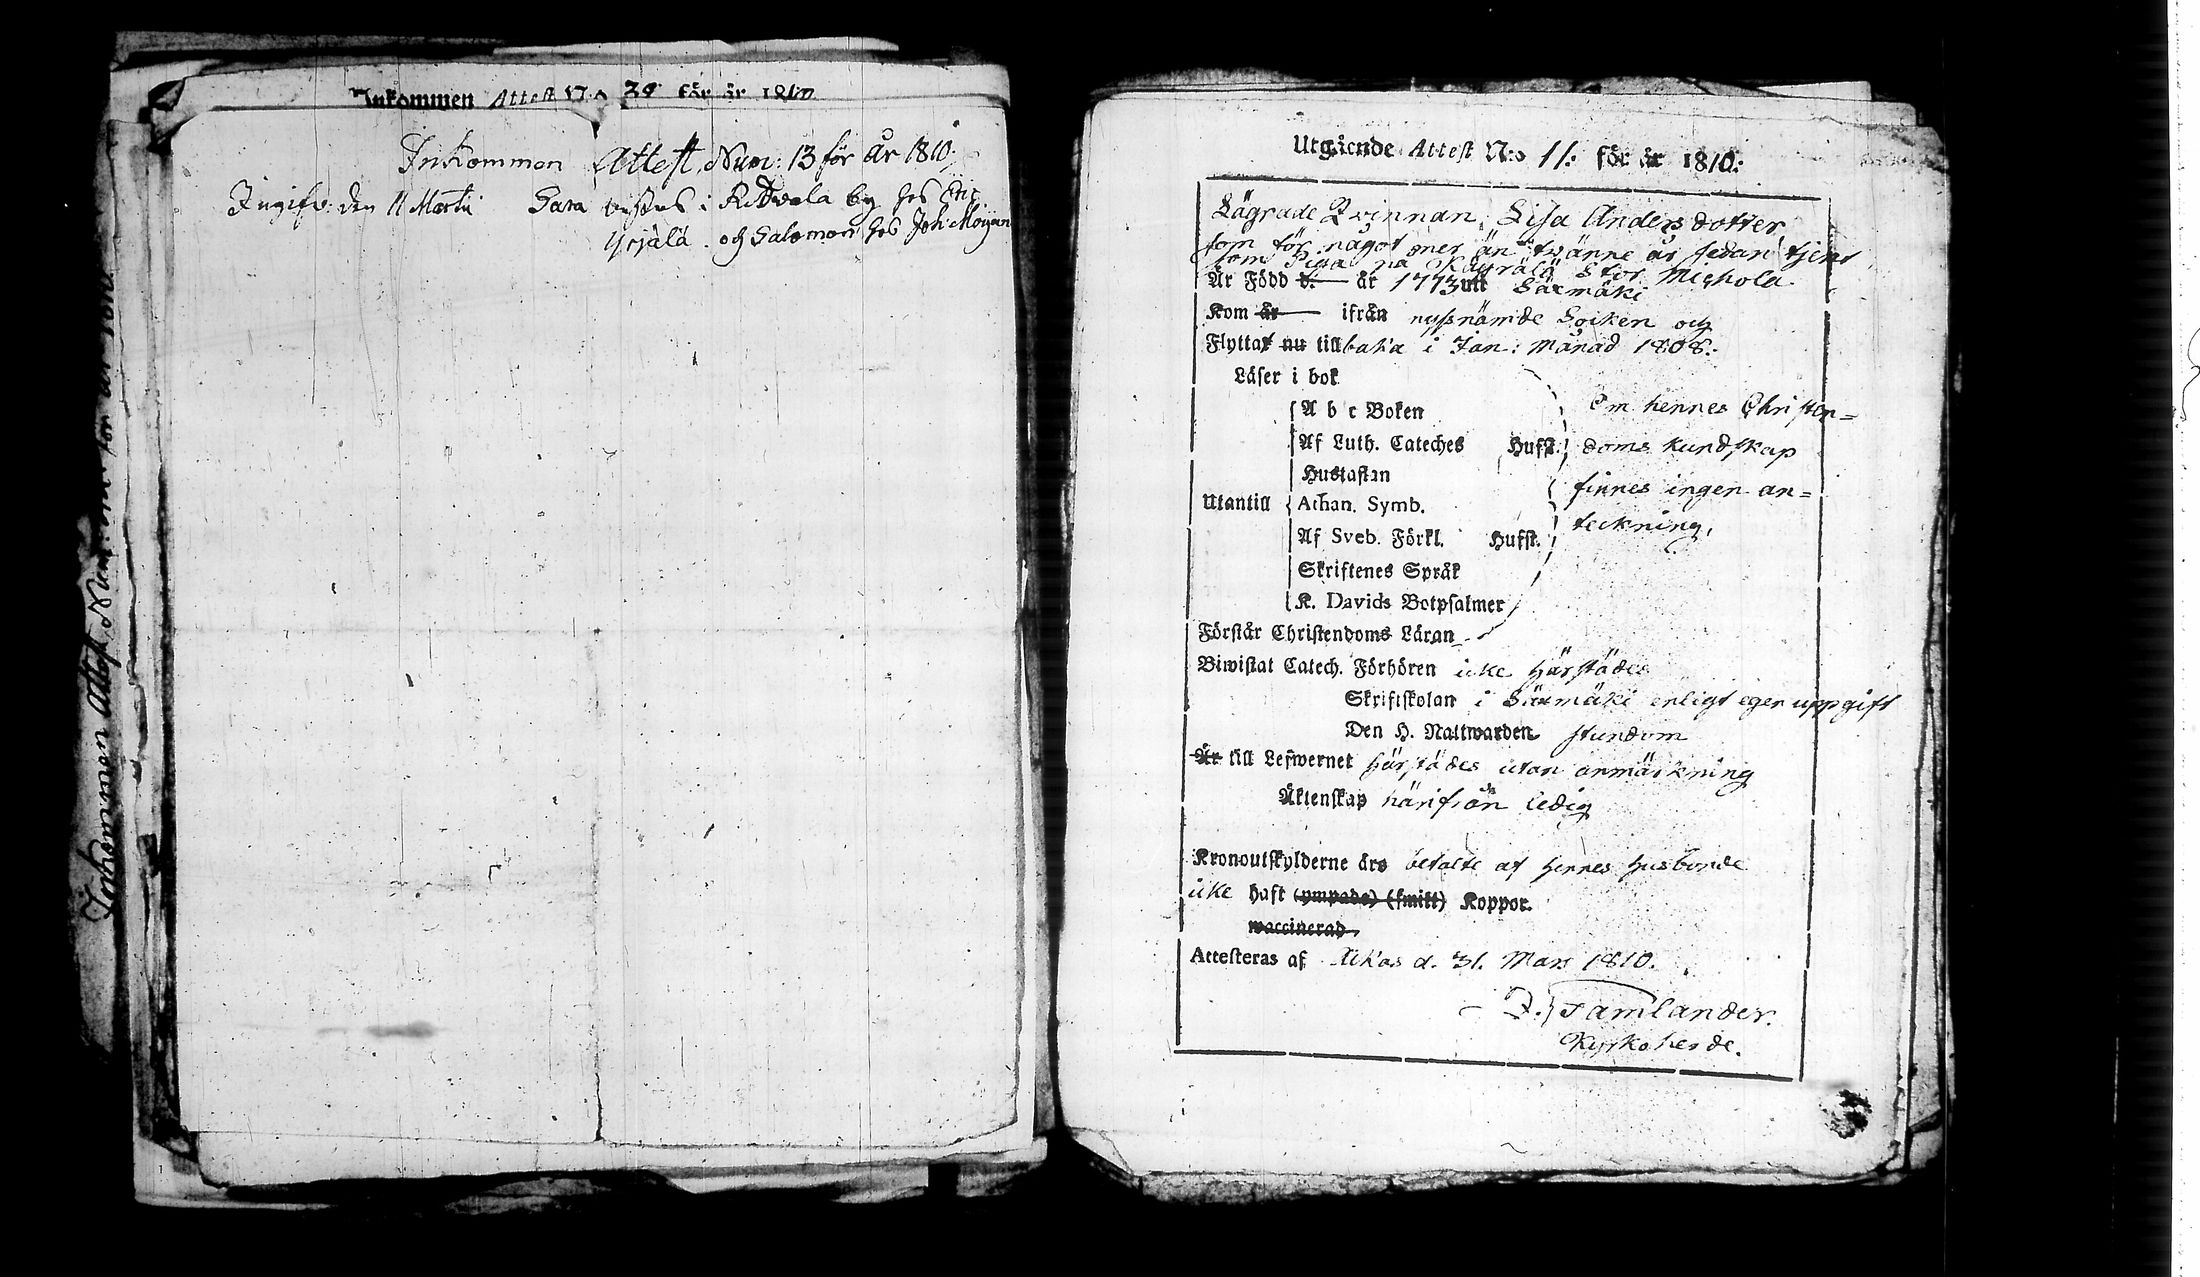 Inkommen Attest N:o 39 för år 1810
Inkommen Attest Num: 13 för år 1810:
Ingifv: den 11 Martii Sara vistas i Ridvala by hos Eric
Yrjälä och Salomon hos Joh:
Inkommen Attest Num: för år 1810
Utgående Attest N:o 11: för år 1810:
Lägrade Qvinnan, Lisa Andersdotter
som för något mer än tvänne år sedan tjent
som Piga på Stor Michola
Är Född d. år 1773 uti Säxmäki
Kom år ifrån nyssnämde Socken och
Flyttat nu tillbaka i Jan: månad 1808:
Läser i bok
A b c Boken
Af Luth. Cateches Hufst.
Hustaflan
Utantill Athan. Symb.
Af Sveb. Förkl. Hufst.
Skriftenes Språk
K. Davids Botpsalmer
Om hennes Christen=
doms kundskap
finnes ingen an=
teckning,
Förstår Christendoms Läran
Biwistat Catech. Förhören icke härstädes
Skriftskolan i Säxmäki enligt egen uppgift
Den H. Nattwarden stundom
Är till Lefwernet härstädes utan anmärkning
Äktenskap härifrån ledig
Kronoutskylderne äro betalte af hennes husbonde
icke haft (ympade) (smitt) Koppor.
waccinerad
Attesteras af Ackas d. 31. Mars 1810.
Z. Tamlander.
Kyrkoherde.